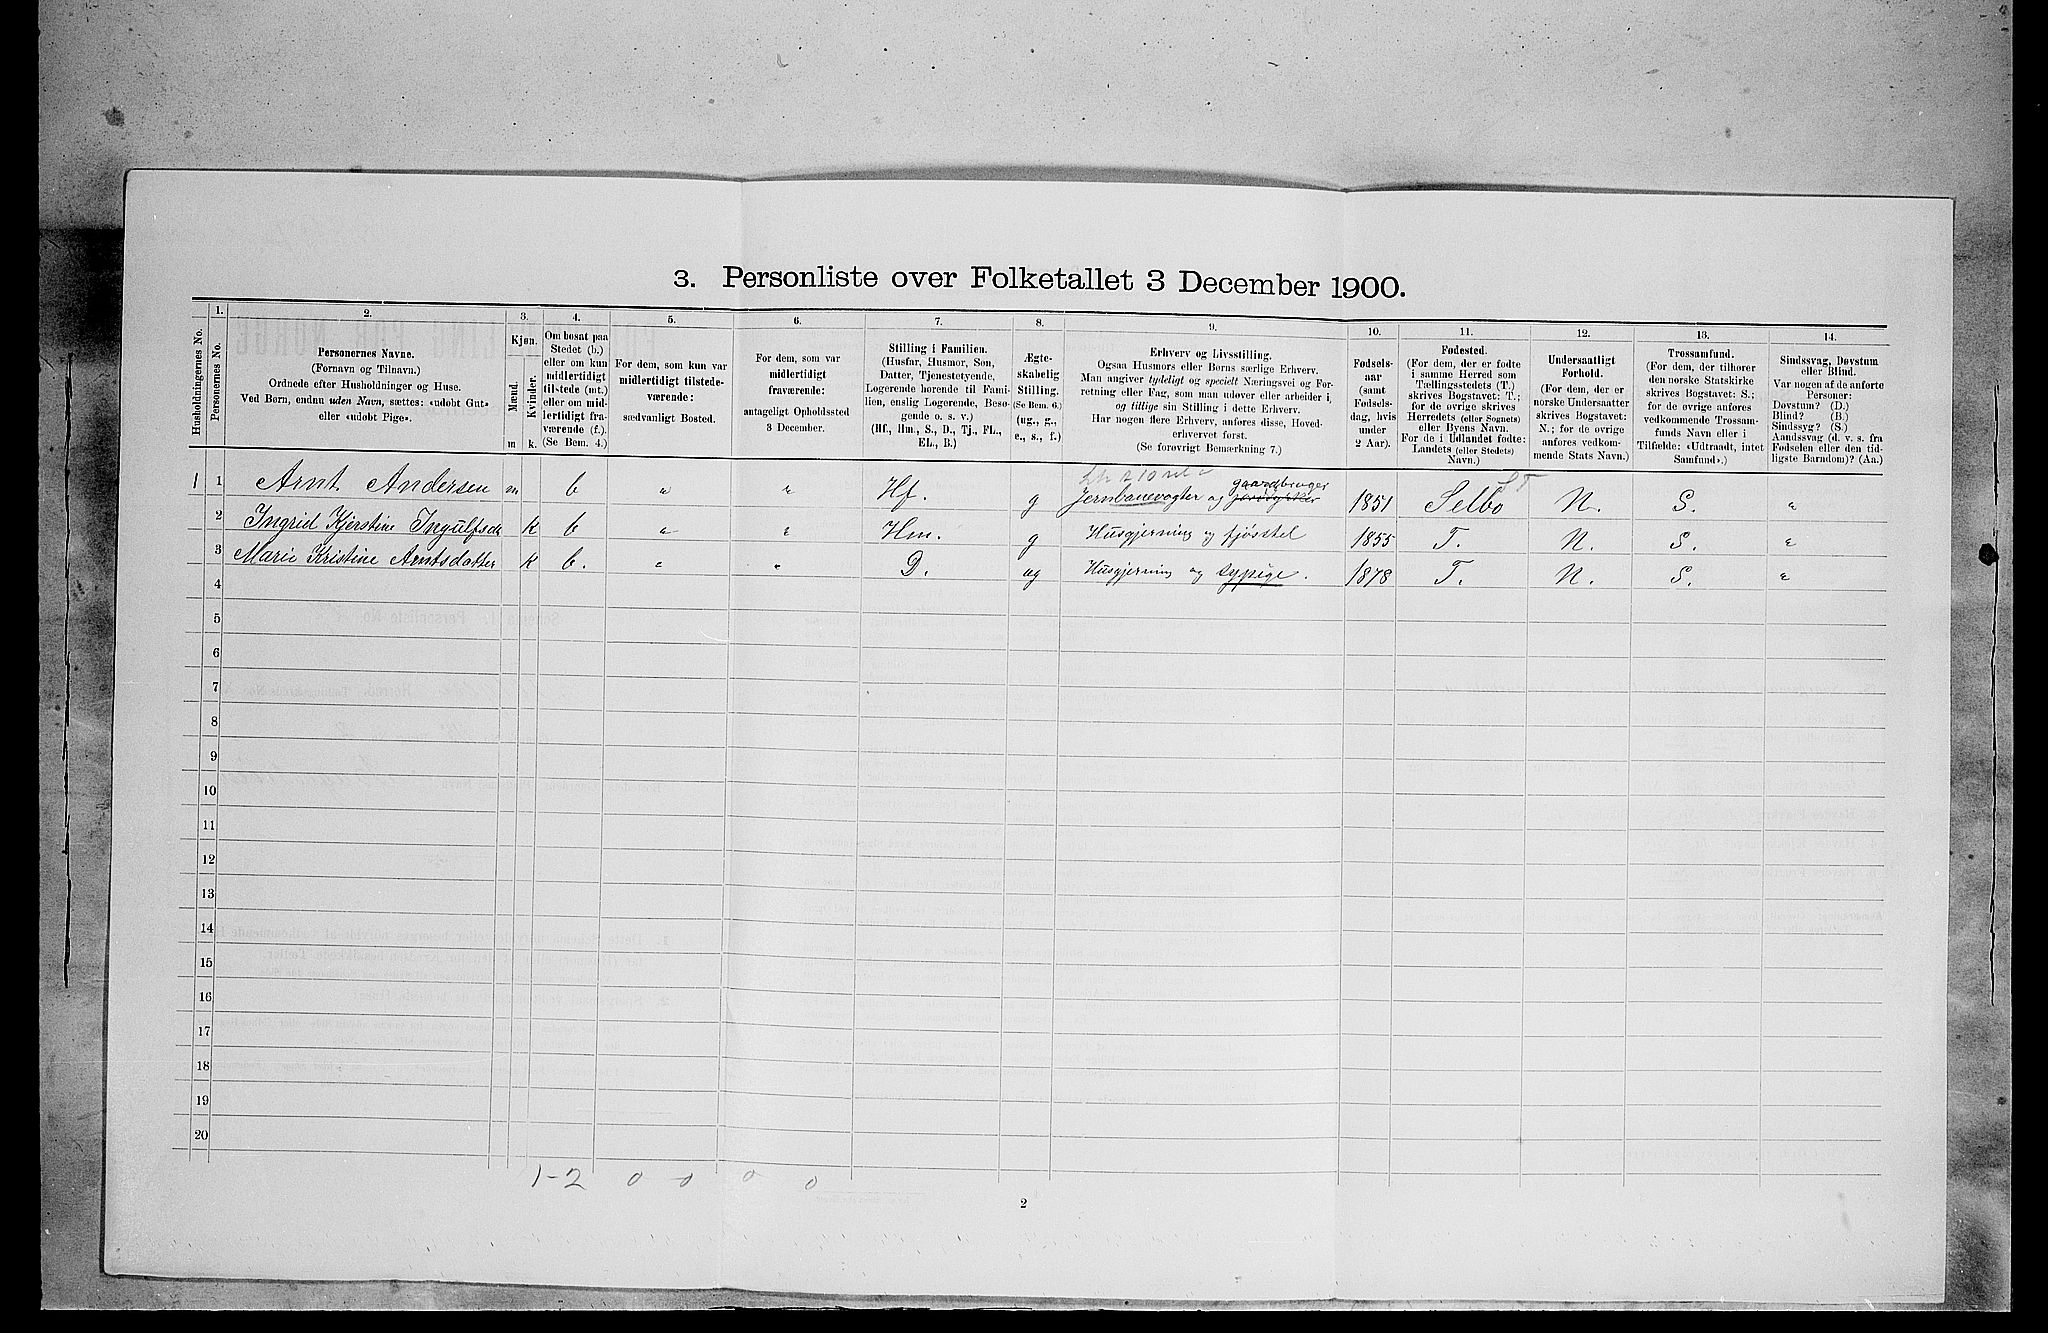 3. Personliste over Folketallet 3 December 1900.
Husholdningernes No.
1.
Personernes No.
2.
Personernes Navne.
(Fornavn og Tilnavn.)
Ordnede efter Husholdninger og Huse.
Ved Børn, endnu uden Navn, sættes: «udøbt Gut»
eller «udøbt Pige».
3.
Kjøn.
Mænd.
Kvinder.
m
k.
4.
Om bosat paa
Stedet (b.)
eller om kun
midlertidigt
tilstede (mt.)
eller om mid-
lertidigt fra-
værende (f.).
(Se Bem. 4.)
5.
For dem, som kun var
midlertidigt tilstede-
værende:
sædvanligt Bosted.
6.
For dem, som var
midlertidigt
fraværende:
antageligt Opholdssted
3 December.
7.
Stilling i Familien.
(Husfar, Husmor, Søn,
Datter, Tjenestetyende,
Logerende hørende til Fami-
lien, enslig Logerende, Besø-
gende o. s. v.)
(Hf., Hm., S., D., Tj., FL.,
EL., B.)
8.
Ægte-
skabelig
Stilling.
(Se Bem. 6.)
(ug., g.,
e., s., f.)
9.
Erhverv og Livsstilling.
Ogsaa Husmors eller Børns særlige Erhverv.
Man angiver tydeligt og specielt Næringsvei og For-
retning eller Fag, som man udøver eller arbeider i,
og tillige sin Stilling i dette Erhverv.
Har nogen flere Erhverv, anføres disse, Hoved-
erhvervet først.
(Se forøvrigt Bemærkning 7.)
10.
Fødsels-
aar
(samt
Fødsels-
dag, hvis
under
2 Aar).
11.
Fødested.
(For dem, der er fødte
i samme Herred som
Tællingsstedets (T.)
skrives Bogstavet: T.;
for de øvrige skrives
Herredets (eller Sognets)
eller Byens Navn.
For de i Udlandet fødte:
Landets (eller Stedets)
Navn.)
12.
Undersaatligt
Forhold.
(For dem, der er
norske Undersaatter
skrives Bogstavet:
N.; for de øvrige
anføres vedkom-
mende Stats Navn.)
13.
Trossamfund.
(For dem, der tilhører
den norske Statskirke
skrives Bogstavet: S.;
for de øvrige anføres
vedkommende Trossam-
funds Navn eller i
Tilfælde: «Udtraadt, intet
Samfund».)
14.
Sindssvag, Døvstum
eller Blind.
Var nogen af de anførte
Personer:
Døvstum? (D.)
Blind? (B.)
Sindssyg? (S.)
Aandssvag (d. v. s. fra
Fødselen eller den tid-
ligste Barndom)? (Aa.)
1 1 Arnt Andersen m b " " Hf. g Jernbanevogter og jorddyrker gaardbruger 1851 Selbo ST N. S. "
2 Ingrid Kjerstine Ingulfsd k b " " Hm. g Husgjerning og fjøsstel 1855 T. N. S. "
3 Marie Kristine Arntsdatter k b. " " D. ug Husgjerning og sypige. 1878 T. N. S. "
4
5
6
7
8
9
10
11
12
13
14
15
16
17
18
19
20
1-2 0 0 0 0
2